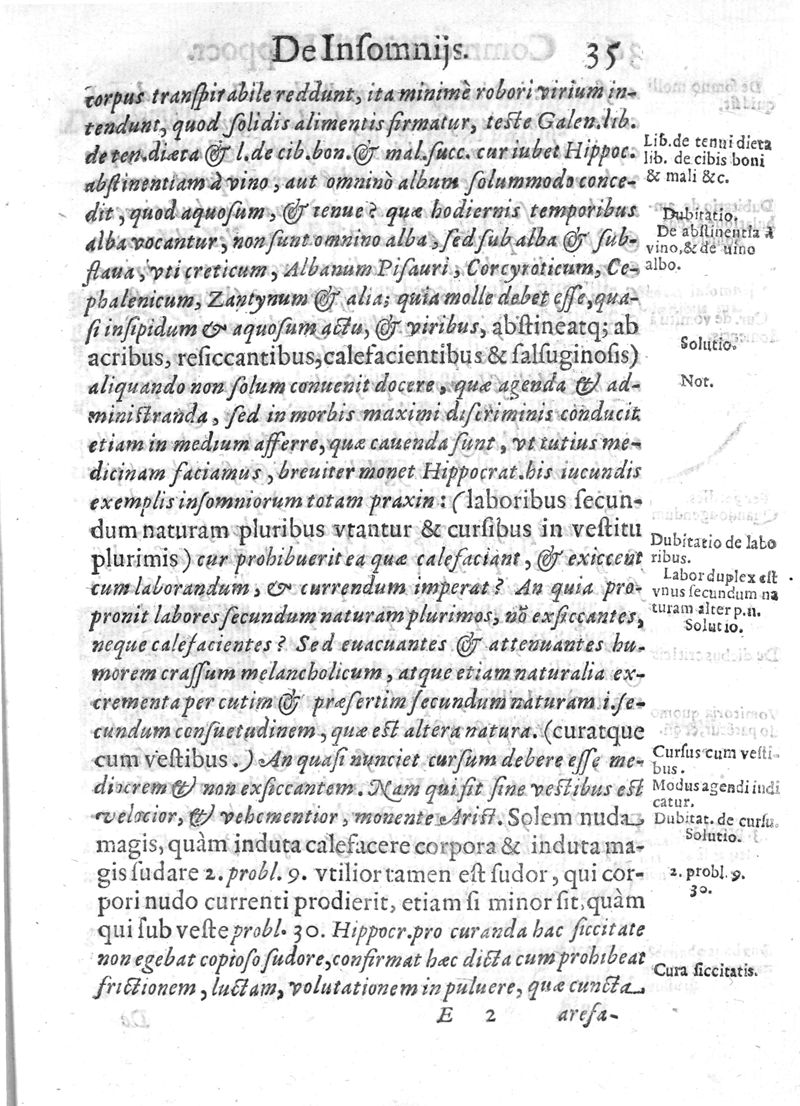 De Insomnijs.
35
corpus transpirabile reddunt, ita minimè robori virium in-
tendunt, quod solidis alimentis firmatur, teste Galen.lib.
de ten.diæta & l.de cib.bon.& mal.succ. cur iubet Hippoc.
abstinentiam à vino, aut omninò album solummodo conce-
dit, quod aquosum, & tenue? quæ hodiernis temporibus
alba vocantur, non sunt omnino alba, sed sub alba & sub-
flaua, vti creticum, Albanum Pisauri, Corcyroticum, Ce-
phalenicum, Zantynum & alia; quia molle debet esse, qua-
si insipidum & aquosum actu, & viribus, abstineatq; ab
acribus, resiccantibus, calefacientibus & salsuginosis)
aliquando non solum conuenit docere, quæ agenda & ad-
ministranda, sed in morbis maximi discriminis conducit
etiam in medium afferre, quæ cauenda sunt, vt tutius me-
dicinam faciamus, breuiter monet Hippocrat.his iucundis
exemplis insomniorum totam praxin: (laboribus secun-
dum naturam pluribus vtantur & cursibus in vestitu
plurimis) cur prohibuerit ea quæ calefaciant, & exiccent
cum laborandum, & currendum imperat? An quia pro-
pronit labores secundum naturam plurimos, nõ exsiccantes,
neque calefacientes? Sed euacuantes & attenuantes hu-
morem crassum melancholicum, atque etiam naturalia ex-
crementa per cutim & præsertim secundum naturam i.se-
cundum consuetudinem, quæ est altera natura. (curatque
cum vestibus.) An quasi nunciet cursum debere esse me-
diocrem & non exsiccantem. Nam qui fit sine vestibus est
velocior, & vehementior, monente Arist. Solem nuda
magis, quàm induta calefacere corpora & induta ma-
gis sudare 2. probl. 9. vtilior tamen est sudor, qui cor-
pori nudo currenti prodierit, etiam si minor sit, quàm
qui sub veste probl. 30. Hippocr.pro curanda hac siccitate
non egebat copioso sudore, confirmat hæc dicta cum prohibeat
frictionem, luctam, volutationem in puluere, quæ cuncta
E 2 arefa-
Lib.de tenui dieta
lib. de cibis boni
& mali &c.
Dubitatio.
De abstinentia à
vino, & de uino
albo.
Solutio.
Not.
Dubitatio de labo
ribus.
Labor duplex est
vnus secundum na
turam alter p.n.
Solutio.
Cursus cum vesti-
bus.
Modus agendi indi
catur.
Dubitat. de cursu.
Solutio.
2. probl. 9.
30.
Cura siccitatis.